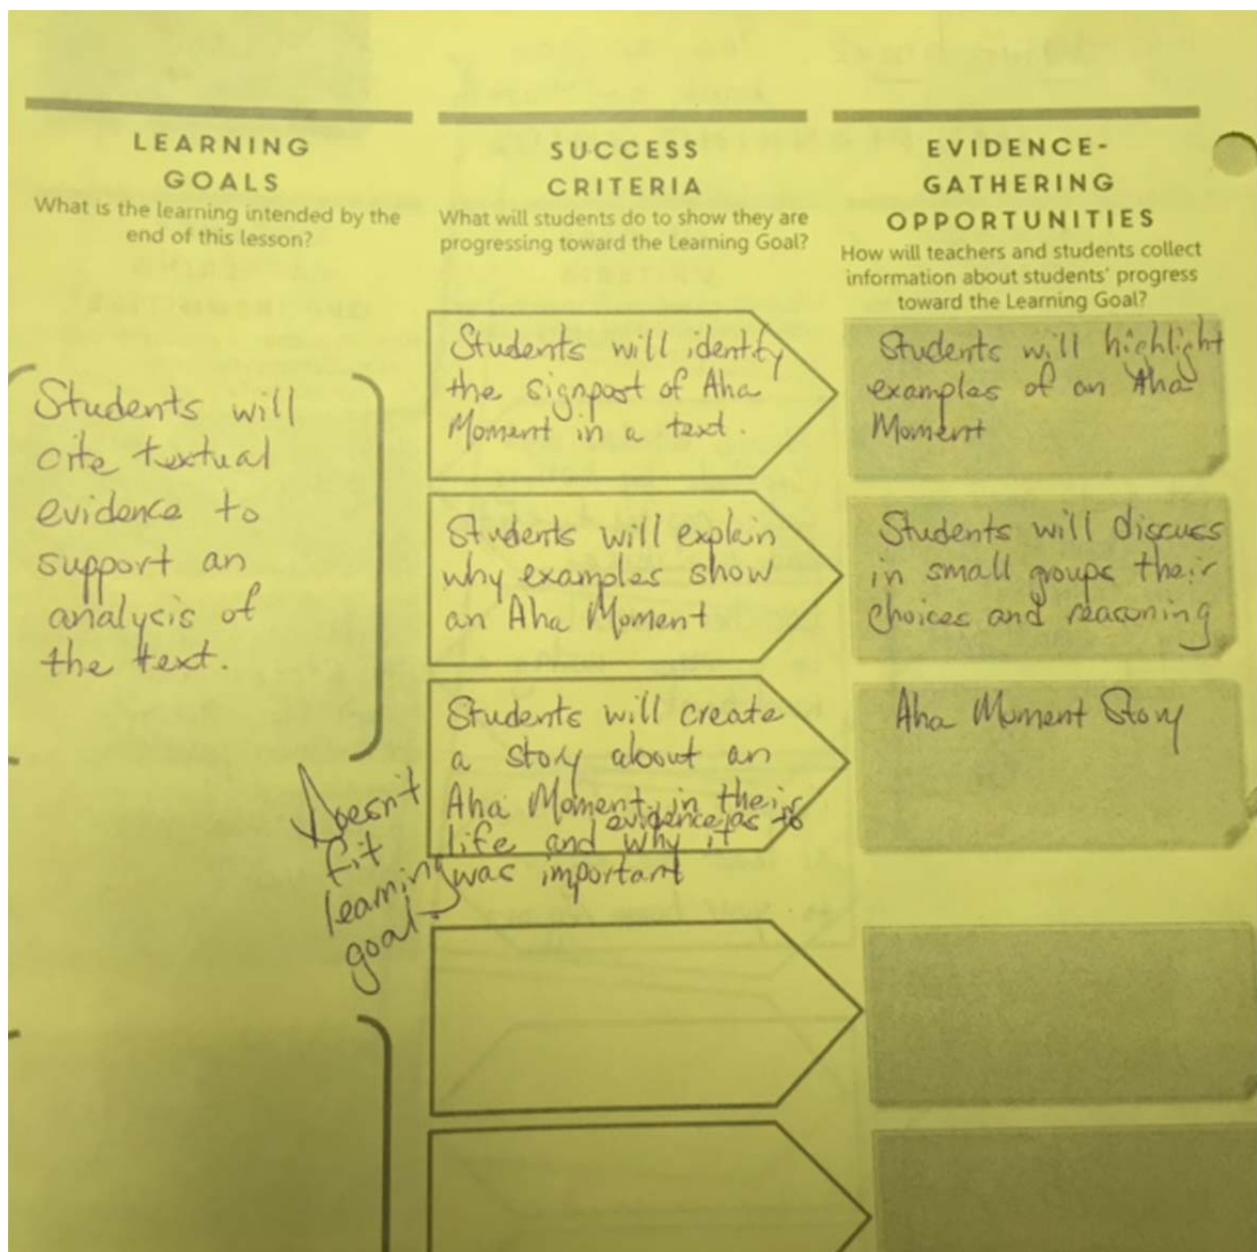 LEARNING
GOALS
What is the learning intended by the
end of this lesson?
Students will
cite textual
evidence to
support an
analysis of
the text.
Doesn't
fit
learning
goal.
SUCCESS
CRITERIA
What will students do to show they are
progressing toward the Learning Goal?
Students will identify
the signpost of Aha
Moment in a text.
Students will explain
why examples show
an Aha Moment
Students will create
a story about an
Aha Moment in their
evidence as to
life and why it
was important
EVIDENCE-
GATHERING
OPPORTUNITIES
How will teachers and students collect
information about students' progress
toward the Learning Goal?
Students will highlight
examples of an Aha
Moment
Students will discuss
in small groups their
choices and reasoning
Aha Moment Story